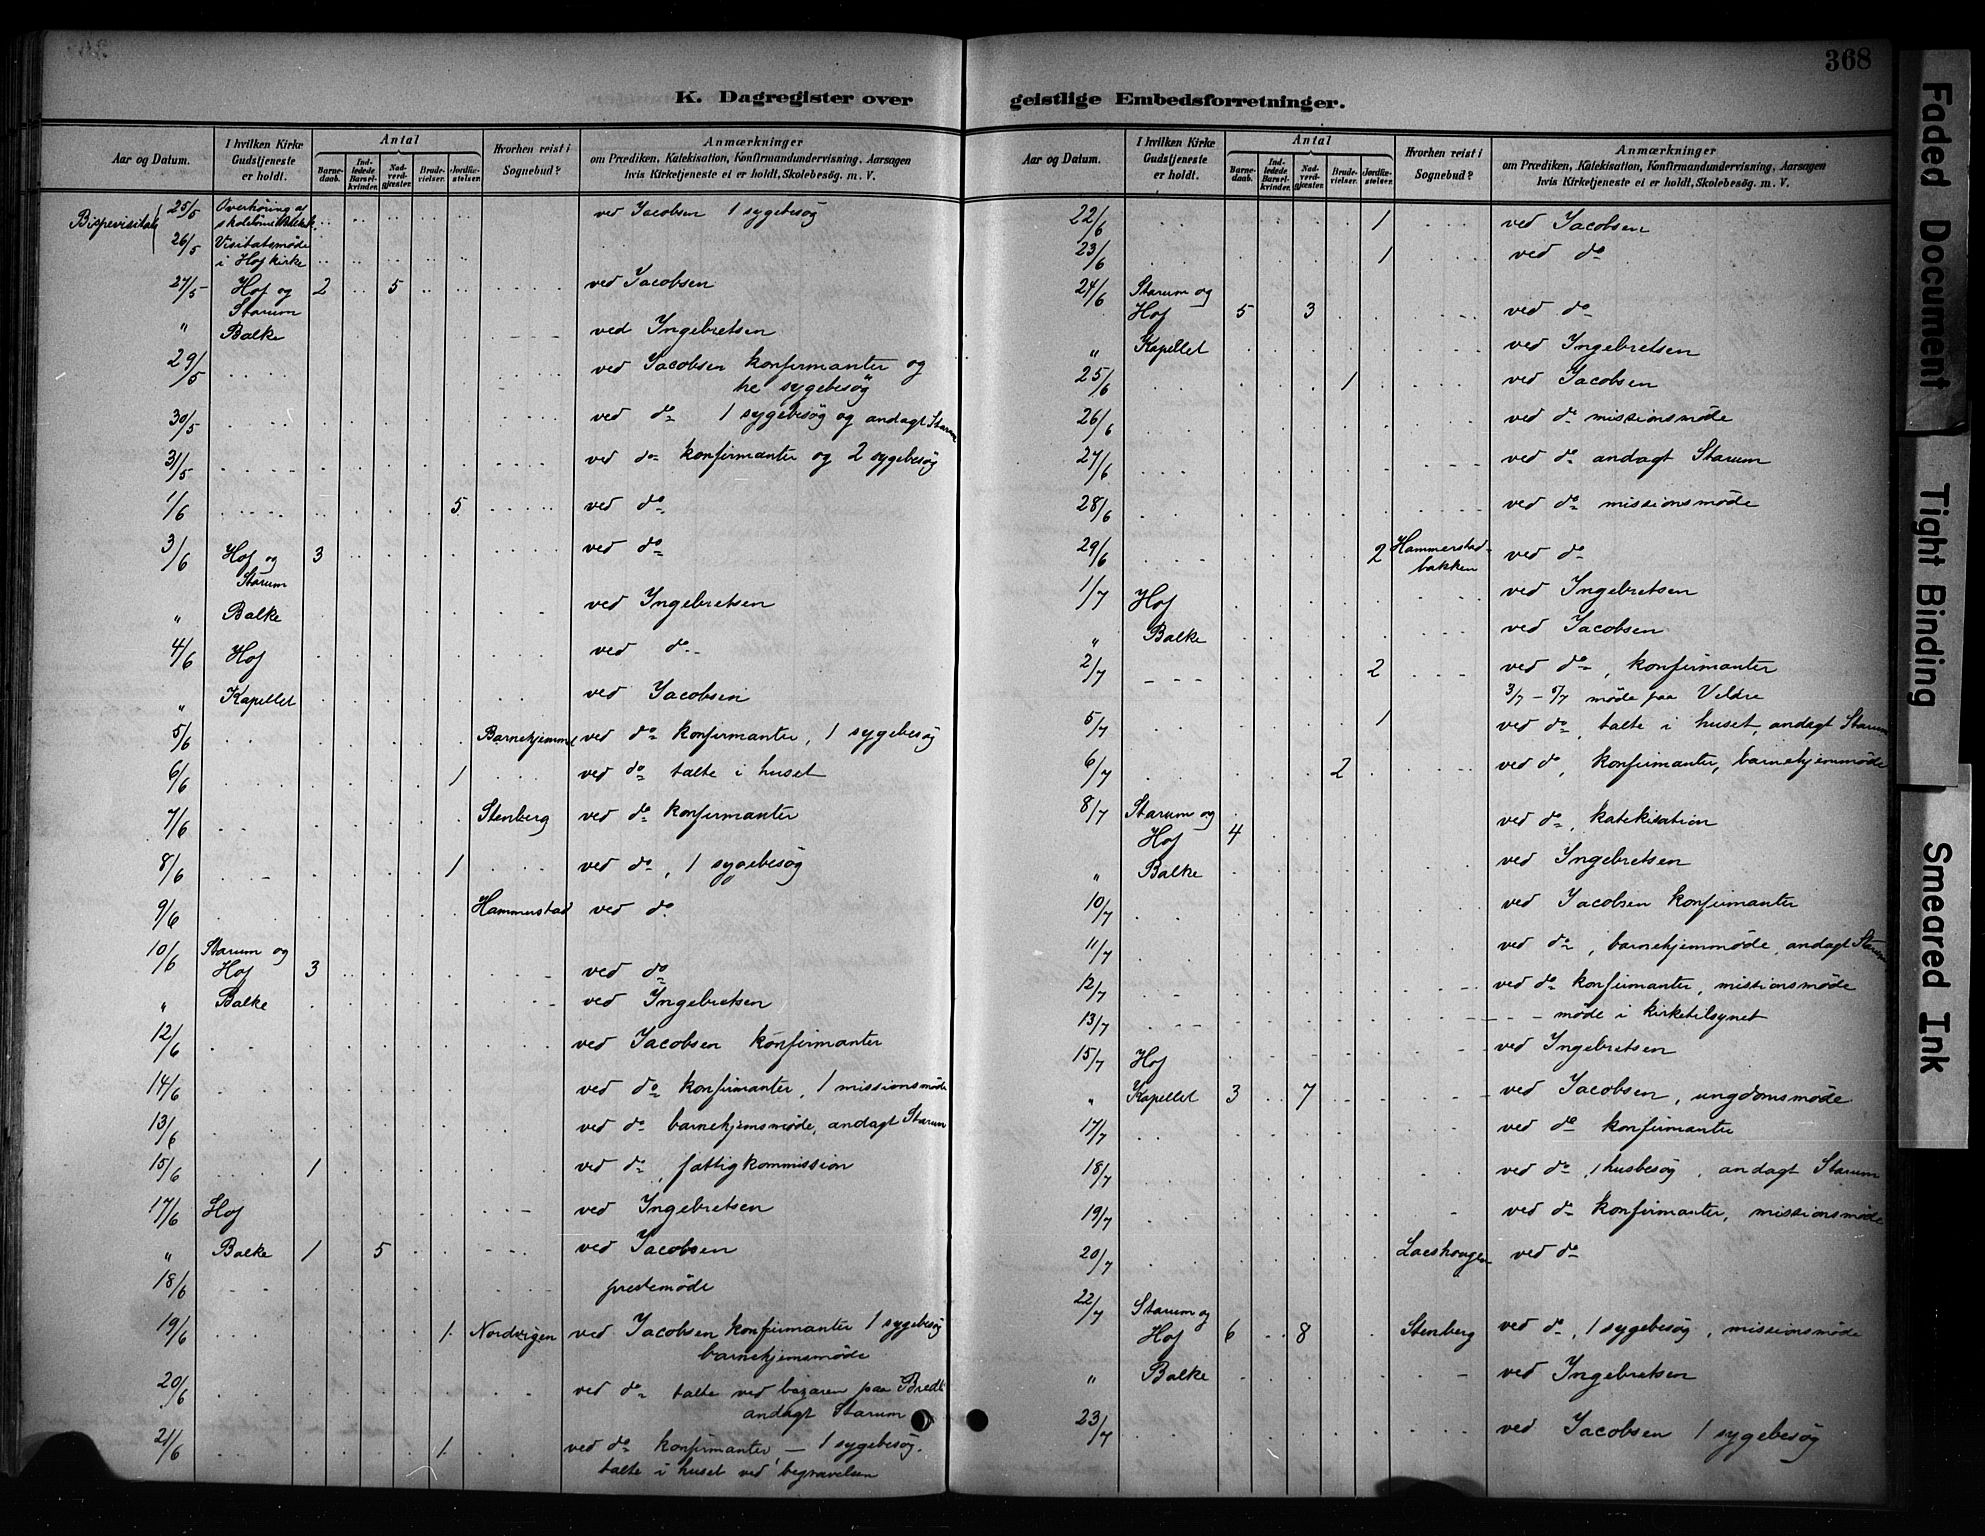 368
K. Dagregister over
Aar og Datum.
I hvilken Kirke Gudstjeneste er holdt.
Antal
Barnedaab.
Indledede Barselkvinder.
Nadverdgjæster.
Brudevielser.
Jordfæstelser.
Hvorhen reist i Sognebud?
Anmærkninger
om Prædiken, Katekisation, Konfirmandundervisning, Aarsagen
hvis Kirketjeneste ei er holdt, Skolebesøg. m. V.
Bispevisitats 25/5 Overhøring af ved Jacobsen 1 sygebesøg
26/5 Visitatsmøde
i Hof kirke
27/5 Hof og 2 5 ved Jacobsen
Starum
" Balke ved Ingebretsen
29/5 ved Jacobsen konfirmanter og
tre sygebesøg
30/5 ved do 1 sygebesøg og andagt Starum
31/5 ved do konfirmanter og 2 sygebesøg
1/6 5 ved do
3/6 Hof og 3 ved do
Starum
" Balke ved Ingebretsen
4/6 Hof ved do
" Kapellet ved Jacobsen
5/6 Barnehjemmet ved do konfirmanter, 1 sygebesøg
6/6 1 ved do talte i huset
7/6 Stenberg ved do konfirmanter
8/6 1 ved do, 1 sygebesøg
9/6 Hammerstad ved do
10/6 Starum og
Hof 3 ved do
" Balke ved Ingebretsen
12/6 ved Jacobsen konfirmanter
14/6 ved do konfirmanter, 1 missionsmøde
13/6 ved do barnehjemsmøde, andagt Starum
15/6 1 ved do, fattigkommission
17/6 Hof ved Ingebretsen
" Balke 1 5 ved Jacobsen
18/6 prestemøde
19/6 1 Nordvigen ved Jacobsen konfirmanter 1 sygebesøg
barnehjemsmøde
20/6 ved do talte ved bazaren paa
andagt Starum
21/6 1 ved do konfirmanter – 1 sygebesøg.
talte i huset ved begravelsen
geistlige Embedsforretninger.
Aar og Datum.
I hvilken Kirke Gudstjeneste er holdt.
Antal
Barnedaab.
Indledede Barselkvinder.
Nadverdgjæster.
Brudevielser.
Jordfæstelser.
Hvorhen reist i Sognebud?
Anmærkninger
om Prædiken, Katekisation, Konfirmandundervisning, Aarsagen
hvis Kirketjeneste ei er holdt, Skolebesøg. m. V.
22/6 1 ved Jacobsen
23/6 1 ved do
24/6 Starum og
Hof 5 3 ved do
" Kapellet ved Ingebretsen
25/6 1 ved Jacobsen
26/6 ved do missionsmøde
27/6 ved do andagt Starum
28/6 ved do missionsmøde
29/6 2 Hammerstad- ved do
bakken
1/7 Hof ved Ingebretsen
" Balke ved Jacobsen
2/7 2 ved do, konfirmanter
3/7 – 5/7 møde paa Veldre
5/7 1 ved do, talte i huset, andagt Starum
6/7 2 ved do, konfirmanter, barnehjemmøde
8/7 Starum og
Hof 4 ved do, katekisation
" Balke ved Ingebretsen
10/7 ved Jacobsen konfirmanter
11/7 ved do, barnehjemmøde, andagt Starum
12/7 ved do konfirmanter, missionsmøde
13/7 møde i kirketilsynet
15/7 Hof ved Ingebretsen
" Kapellet 3 7 ved Jacobsen, ungdomsmøde
17/7 ved do konfirmanter
18/7 ved do, 1 husbesøg, andagt Starum
19/7 ved do konfirmanter, missionsmøde
20/7 ved do
22/7 Starum og
Hof 6 8 Stenberg ved do, 1 sygebesøg, missionsmøde
" Balke ved Ingebretsen
23/7 ved Jacobsen 1 sygebesøg
Faded Document
Tight Binding
Smeared Ink